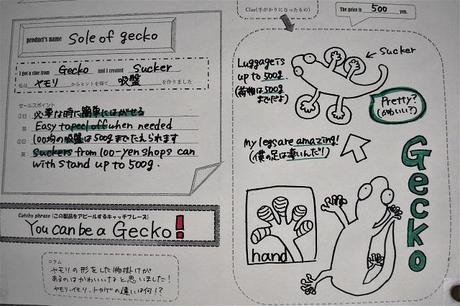 product's name Sole of gecko
I got a clue from Gecko and I created Sucker
私は ヤモリ からヒントを得て 吸盤 を作りました
セールスポイント
必要な時に簡単にはがせる
Easy to peel off when needed
100均の吸盤は500gまでたえられます
suckers from 100-yen shops can
with stand up to 500g.
Catchy phrase (この製品をアピールするキャッチフレーズ)
You can be a Gecko!
コラム
ヤモリの形をした
あるのはかわいいなと思いました!
ヤモリ、イモリ、トカゲの違いは何!?
Clue(手がかりになったもの)
The price is 500 yen.
Luggage is
up to 500g
(荷物は500g
までだよ)
Sucker
Pretty?
(かわいい?)
My legs are amazing!
(僕の足は凄いんだ!)
hand
Gecko